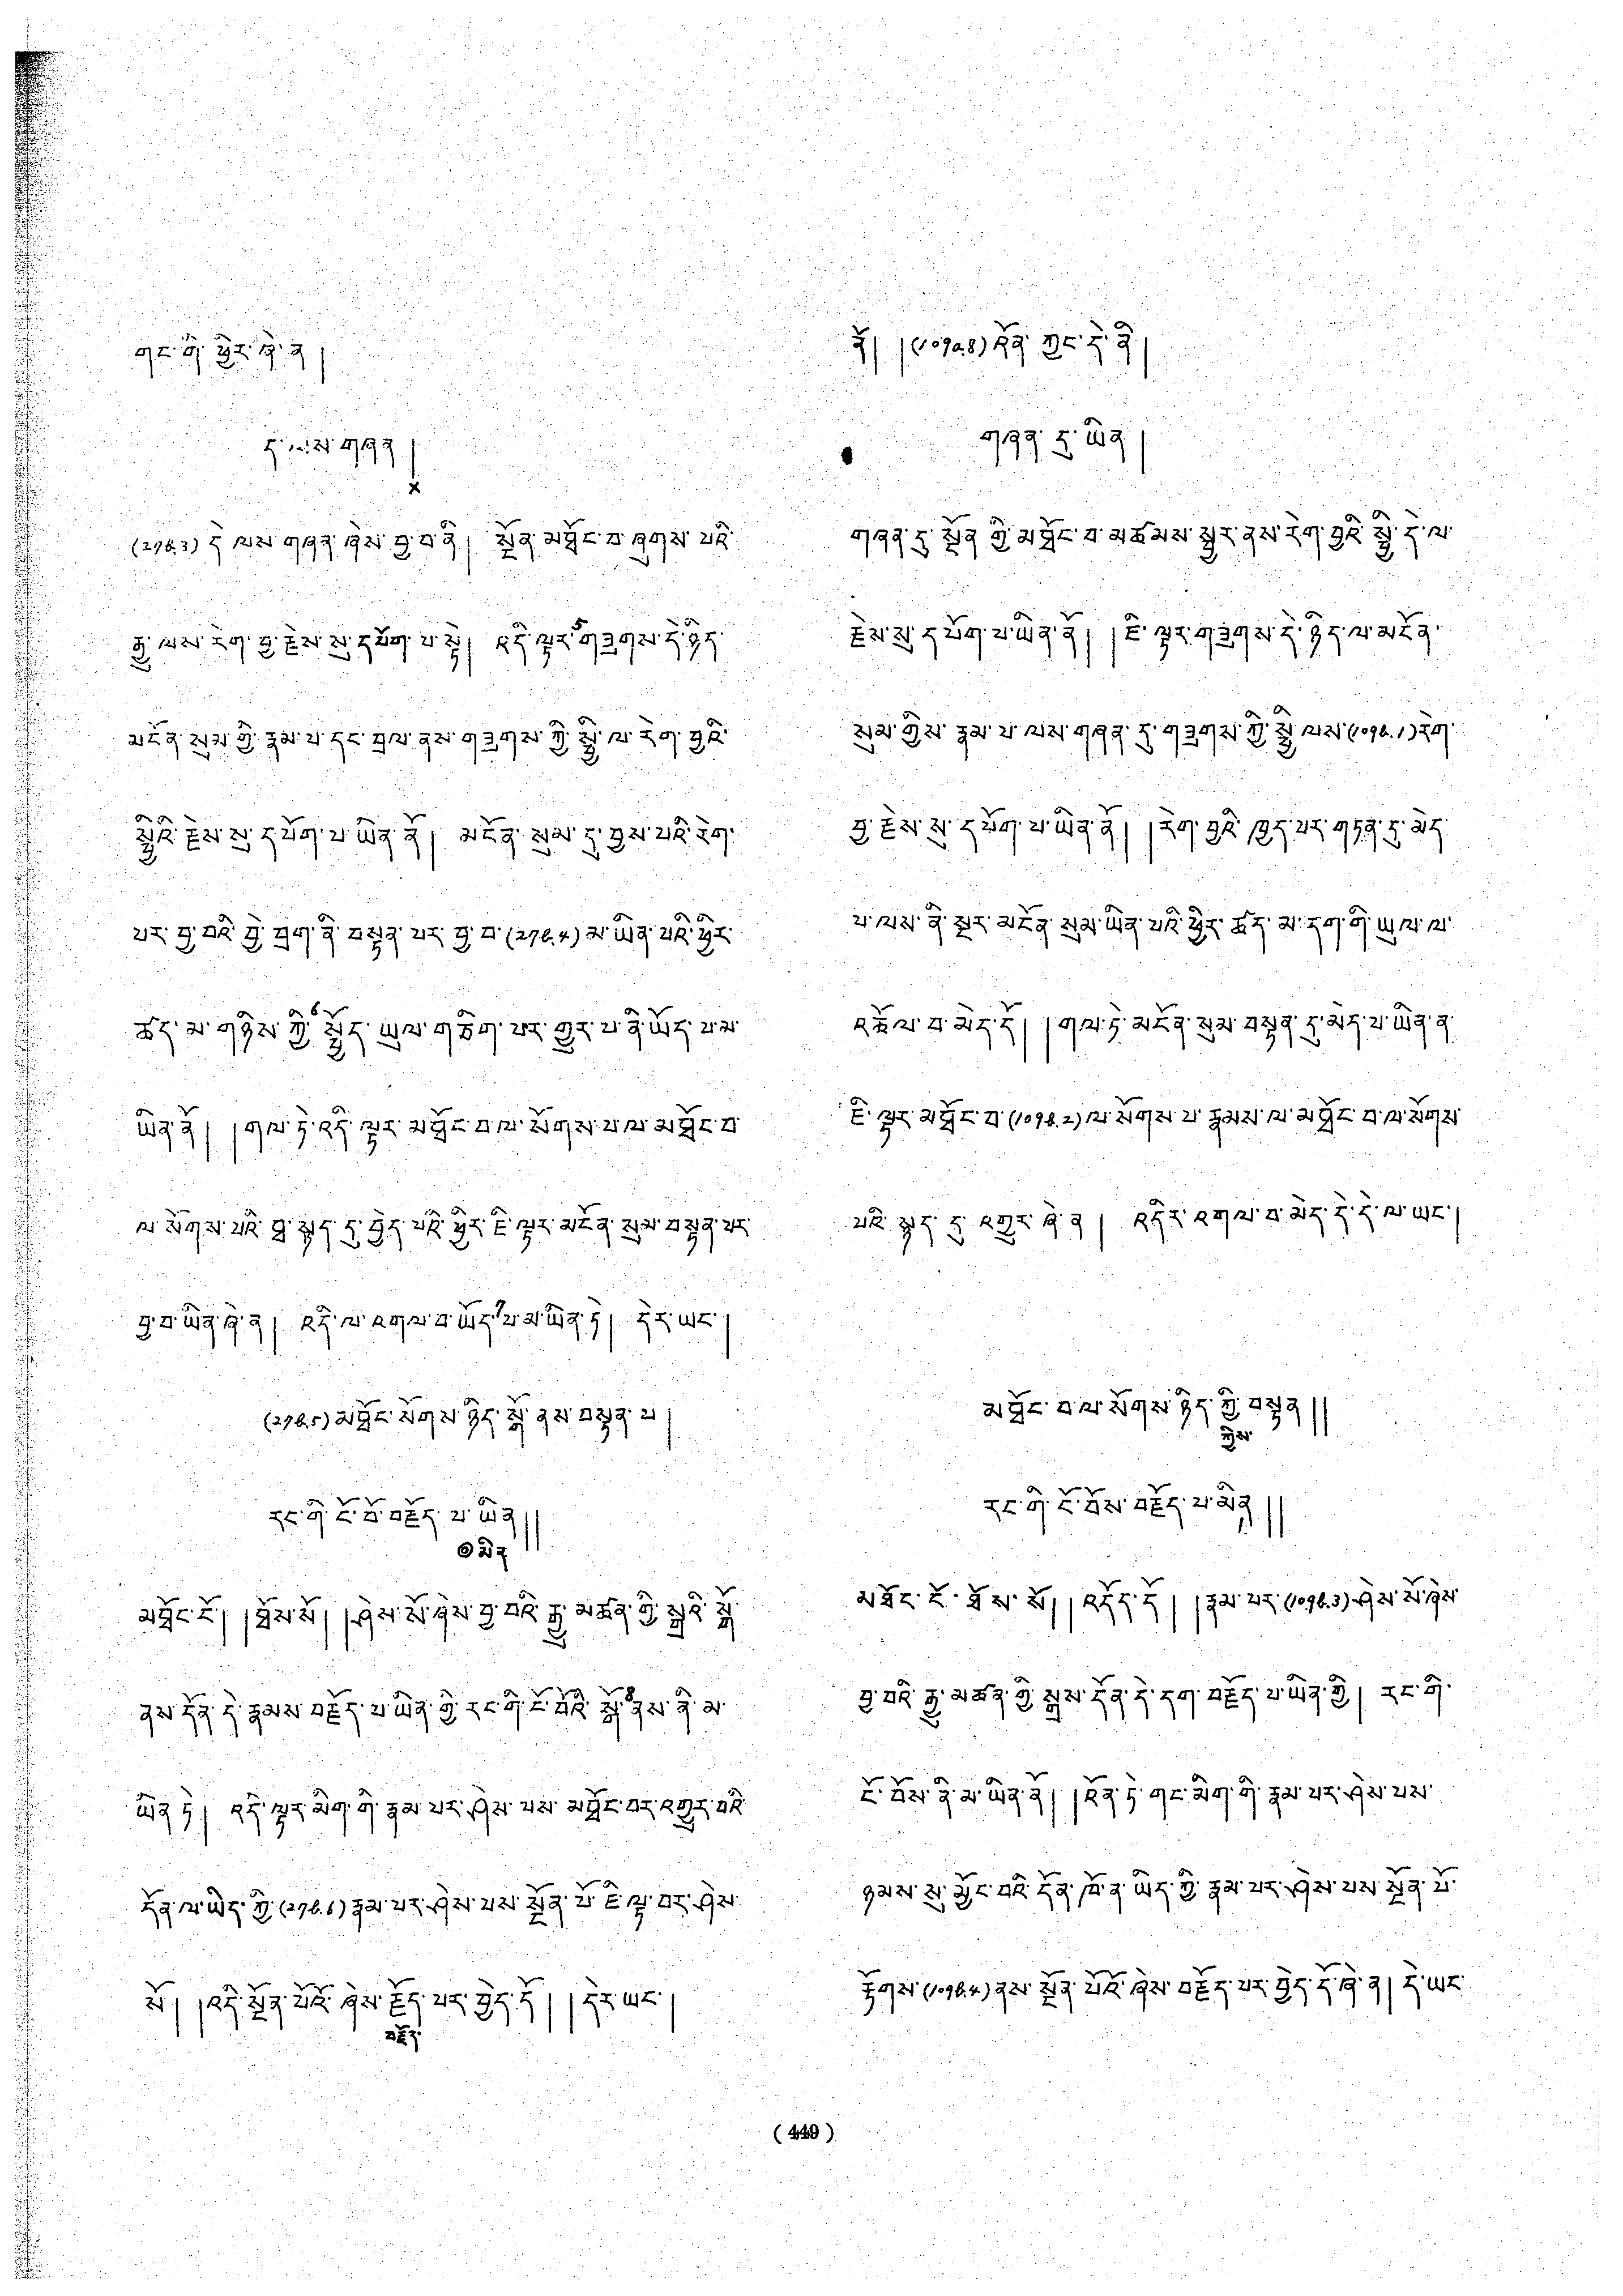 གང་གི་ཕྱིར་ཞེ་ན།
ལས་གཞན།
×
(27b.3) དེ་ལས་གཞན་ཞེས་བྱ་བ་ནི། སྔོན་མཐོང་བ་ཞུགས་པའི་
རྒྱུ་ལས་རེག་བྱ་རྗེས་སུ་དཔོག་པ་སྟེ། འདི་ལྟར་5གཟུགས་དེ་ཉིད་
མངོན་སུམ་གྱི་རྣམ་པ་དང་བྲལ་ནས་གཟུགས་ཀྱི་སྤྱི་ལ་རེག་བྱའི་
སྤྱིའི་རྗེས་སུ་དཔོག་པ་ཡིན་ནོ། མངོན་སུམ་དུ་བྱས་པའི་རེག་
པར་བྱ་བའི་བྱེ་བྲག་ནི་བསྟན་པར་བྱ་བ་(27b.4)མ་ཡིན་པའི་ཕྱིར་
ཚད་མ་གཉིས་ཀྱི་6སྤྱོད་ཡུལ་གཅིག་པར་གྱུར་པ་ནི་ཡོད་པ་མ་
ཡིན་ནོ། །གལ་ཏེ་འདི་ལྟར་མཐོང་བ་ལ་སོགས་པ་ལ་མཐོང་བ་
ལ་སོགས་པའི་ཐ་སྙད་དུ་བྱེད་པའི་ཕྱིར་ཇི་ལྟར་མངོན་སུམ་བསྟན་པར་
བྱ་བ་ཡིན་ཞེ་ན། འདི་ལ་འགལ་བ་ཡོད་7པ་མ་ཡིན་ཏེ། དེར་ཡང་།
(27b.5)མཐོང་སོགས་ཉིད་སྒོ་ནས་བསྟན་པ།
རང་གི་ངོ་བོ་བརྗོད་པ་ཡིན༎
མིན
མཐོང་ངོ། །ཐོས་སོ། །ཤེས་སོ་ཞེས་བྱ་བའི་རྒྱུ་མཚན་གྱི་སྒྲའི་སྒོ་
ནས་དོན་དེ་རྣམས་བརྗོད་པ་ཡིན་གྱི་རང་གི་ངོ་བོའི་སྒོ་8ནས་ནི་མ་
ཡིན་ཏེ། འདི་ལྟར་མིག་གི་རྣམ་པར་ཤེས་པས་མཐོང་བར་འགྱུར་བའི་
དོན་ལ་ཡིད་ཀྱི་(27b.6)རྣམ་པར་ཤེས་པས་སྔོན་པོ་ཇི་ལྟ་བར་ཤེས་
སོ། །འདི་སྔོན་པོའོ་ཞེས་རྗོད་པར་བྱེད་དོ། །དེར་ཡང་།
བརྗོད་
ནོ། །(109a.8)འོན་ཀྱང་དེ་ནི།
གཞན་དུ་ཡིན།
གཞན་དུ་སྔོན་གྱི་མཐོང་བ་མཚམས་སྦྱར་ནས་རེག་བྱའི་སྤྱི་དེ་ལ་
རྗེས་སུ་དཔོག་པ་ཡིན་ནོ། །ཇི་ལྟར་གཟུགས་དེ་ཉིད་ལ་མངོན་
སུམ་གྱིས་རྣམ་པ་ལས་གཞན་དུ་གཟུགས་ཀྱི་སྤྱི་ལས་(109b.1)རེག་
བྱ་རྗེས་སུ་དཔོག་པ་ཡིན་ནོ། །རེག་བྱའི་ཁྱད་པར་གཏན་དུ་མེད་
པ་ལས་ནི་སྔར་མངོན་སུམ་ཡིན་པའི་ཕྱིར་ཚད་མ་དག་གི་ཡུལ་ལ་
འཆོལ་བ་མེད་དོ། །གལ་ཏེ་མངོན་སུམ་བསྟན་དུ་མེད་པ་ཡིན་ན་
ཇི་ལྟར་མཐོང་བ་(109b.2)ལ་སོགས་པ་རྣམས་ལ་མཐོང་བ་ལ་སོགས་
པའི་སྙད་དུ་འགྱུར་ཞེ་ན། འདིར་འགལ་བ་མེད་དེ་དེ་ལ་ཡང་།
མཐོང་བ་ལ་སོགས་ཉིད་ཀྱི་བསྟན༎
ཀྱིས་
རང་གི་ངོ་བོས་བརྗོད་པ་མིན༎
མཐོང་ངོ་ཐོས་སོ། །འདོད་དོ། །རྣམ་པར་(109b.3)ཤེས་སོ་ཞེས་
བྱ་བའི་རྒྱུ་མཚན་གྱི་སྒྲས་དོན་དེ་དག་བརྗོད་པ་ཡིན་གྱི། རང་གི་
ངོ་བོས་ནི་མ་ཡིན་ནོ། །འོན་ཏེ་གང་མིག་གི་རྣམ་པར་ཤེས་པས་
ཉམས་སུ་མྱོང་བའི་དོན་ཁོ་ན་ཡིད་ཀྱི་རྣམ་པར་ཤེས་པས་སྔོན་པོ་
རྟོགས་(109b.4)ནས་སྔོན་པོའོ་ཞེས་བརྗོད་པར་བྱེད་དོ་ཞེ་ན། དེ་ཡང་
(449)